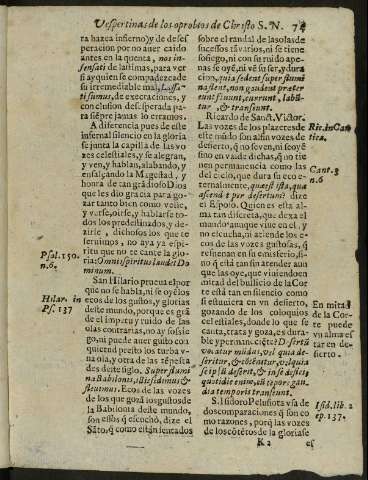 Vespertinas de los oprobios de Christo S. N. 74
ra hazea infierno) y de deses
peracion por no auer caido
antes en la quenta, nos in-
sensati de lastimas, para ver
si ay quien se compadezca de
su irremediable mal, Lassa-
ti sumus, de execraciones, y
conclusion desesperada pa-
ra siẽpre jamàs lo erramos.
A diferencia pues de este
infernal silencio en la gloria
se junta la capilla de las vo-
zes celestiales, y se alegran,
y ven, y hablan, alabando, y
ensalçando la Magestad, y
honra de tan grãdioso Dios
que les dio gracia para go-
zar tanto bien como verle,
y verse, oirse, y hablarse to-
dos los predestinados, y de-
zirle, dichosos los que te
seruimos, no aya ya espi-
ritu que no te cante la glo-
ria: Omnis spiritus laudet Do
minum.
Psal. 150.
n. 6.
San Hilario prueua el por
que no se habla, ni se oyẽ los
ecos de los gustos, y glorias
deste mundo, porque es grã
de el impetu y ruido de las
olas contrarias, no ay sossie-
go, ni puede auer guito con
quietud presto los turba v-
na ola, y otra de las tẽpesta
des deste siglo. Super flumi
na Babilonis, illic sedimus &
fleuimus. Ecos de las vozes
de los que gozã los gustos de
la Babilonia deste mundo,
son essos q̃ escuchò, dize el
Sãto, q̃ como estàn sentados
Hilar. in
Ps. 137
sobre el raudal de las olas de
sucessos tã varios, ni se tiene
sosiego, ni con su ruido ape-
nas se oyẽ, ni vè su ser, y dura
cion, quia sedent super flumi
na flent, non gaudent præter
eunt fiuunt, currunt, labũ
tur, & transeunt.
Ricardo de Sanct. Victor.
Las vozes de los plazeres de
este mũdo son assi vozes de
desierto, q̃ no se ven, ni se oyẽ
sino en vaz de dichas, que no
tienen permanencia como las
del cielo, que dura su eco e-
ternalmente, quæ est ista, quæ
ascendit per desertum? dize
el Esposo. Quien es esta al-
ma tan discreta, que dexa el
mundo aunque viue en el, y
no escucha, ni atiende los e-
cos de las vozes gustosas, q̃
resuenan en su emisferio, si-
no q̃ està tan sin atender aun
que las oye, que viniendo en
mitad del bullicio de la Cor
te està tan en silencio como
si estuuiera en vn desierto,
gozando de los coloquios
celestiales, donde lo que se
canta, trata y goza, es dura-
ble y permaneciẽte? Desertũ
vocatur mũdus, vel quia de-
seritur, & cõtẽnatur, vel quia
se ipsũ deserit, & in se deficit
quotidie enim, cũ tepore gau-
dia temporis transeunt.
Ric. in Can
tica.
Cant. 3
n. 6
En mitad
de la Cor-
te puede
vn alma es
tar en de-
sierto.
S. Isidoro Pelusiota vsa de
dos comparaciones q̃ son co
mo razones, porq̃ las vozes
de los cõtẽtos de la gloria se
Isid. lib. 2
ep. 137.
K 2
es